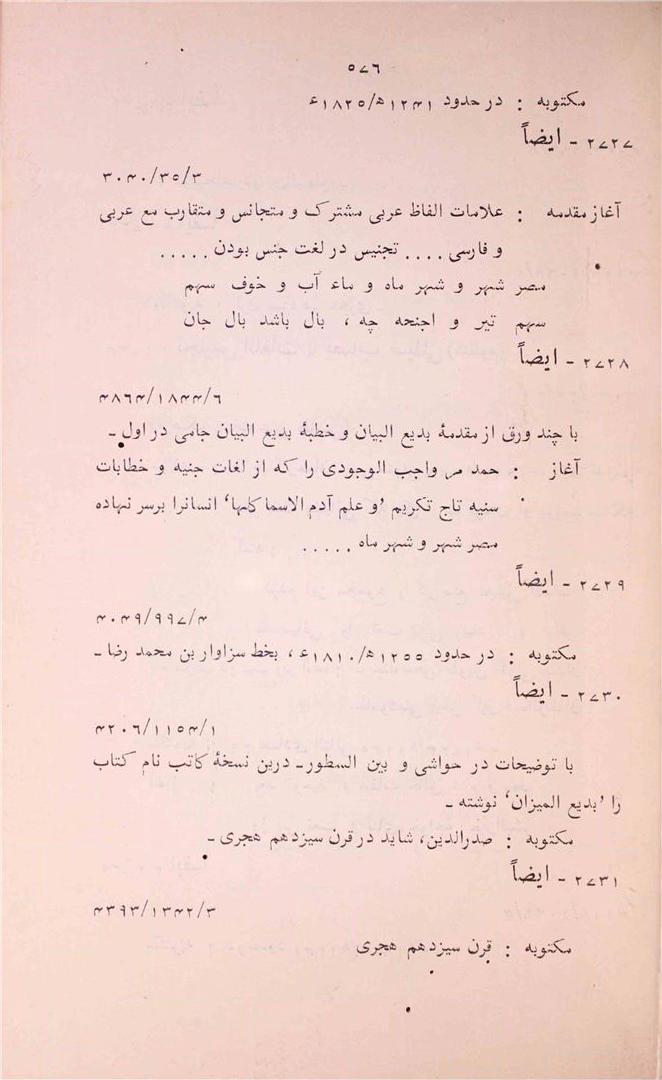 ۵۷۶
مکتوبه : در حدود ۱۲۴۱ھ/۱۸۲۵ء
۲۷۲۷ - ایضاً
۳۰۴۰/۳۵/۳
آغاز مقدمه : علامات الفاظ عربی مشترک و متجانس و متقارب مع عربی
و فارسی .... تجنیس در لغت جنس بودن .....
مصر شهر و شهر ماه و ماء آب و خوف سهم
سهم تیر و اجنحه چه ، بال باشد بال جان
۲۷۲۸ - ایضاً
۴۸۶۴/۱۸۴۴/۶
با چند ورق از مقدمۀ بدیع البیان و خطبۀ بدیع البیان جامی در اول -
آغاز : حمد مر واجب الوجودی را که از لغات جنیه و خطابات
سنیه تاج تکریم ’و علم آدم الاسما کلها‘ انسانرا برسر نهاده
مصر شهر و شهر ماه .....
۲۷۲۹ - ایضاً
۴۰۴۹/۹۹۷/۴
مکتوبه : در حدود ۱۲۵۵ھ/۱۸۱۰ء ، بخط سزاوار بن محمد رضا -
۲۷۳۰ - ایضاً
۴۲۰۶/۱۱۵۴/۱
با توضیحات در حواشی و بین السطور - درین نسخۀ کاتب نام کتاب
را ’بدیع المیزان‘ نوشته -
مکتوبه : صدرالدین، شاید در قرن سیزدهم هجری -
۲۷۳۱ - ایضاً
۴۳۹۳/۱۳۴۲/۳
مکتوبه : قرن سیزدهم هجری